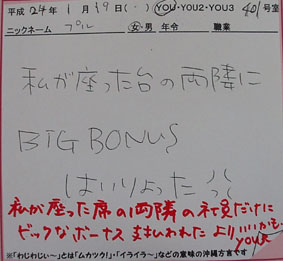 平成24年1月19日(・) YOU・YOU2・YOU3 401号室
ニックネーム プル 女・男 年令 職業
私が座った台の両隣に
BIG BONUS
はいりよった
私が座った席の両隣の社員だけに
ビックなボーナス支払われたよりいいかも。
YOU
※「わじわじ～」とは「ムカツク!」・「イライラ～」などの意味の沖縄方言です